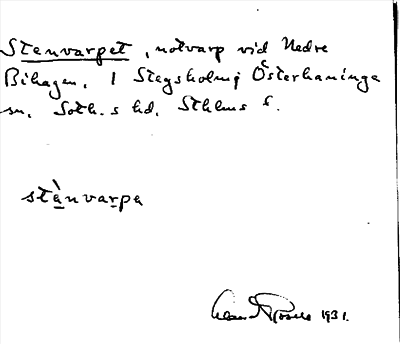 Stenvarpet, notvarp vid Nedre
Bihagen. I Stegsholm, Österhaninge
sn. Soth.s hd. Sthlms l.
stànvarpa
1931.